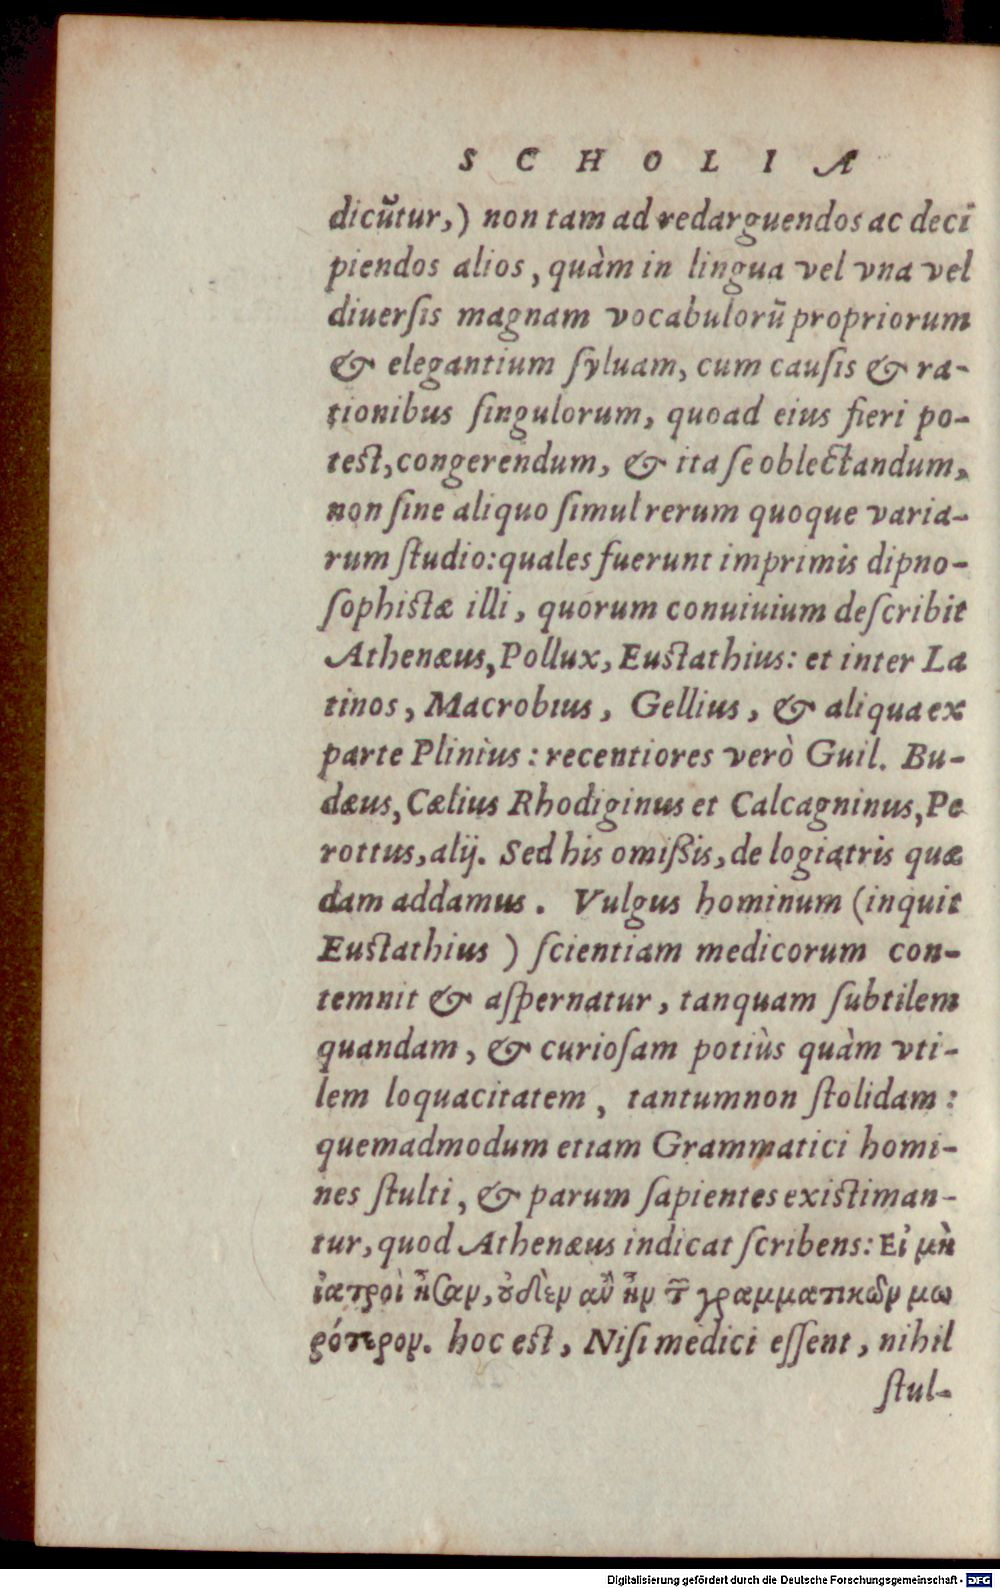 SCHOLIA
dicũtur,) non tam ad redarguendos ac deci
piendos alios, quàm in lingua vel vna vel
diuersis magnam vocabulorũ propriorum
& elegantium syluam, cum causis & ra-
tionibus singulorum, quoad eius fieri po-
test, congerendum, & ita se oblectandum,
non sine aliquo simul rerum quoque varia-
rum studio: quales fuerunt imprimis dipno-
sophistæ illi, quorum conuiuium describit
Athenæus, Pollux, Eustathius: et inter La
tinos, Macrobius, Gellius, & aliqua ex
parte Plinius: recentiores verò Guil. Bu-
dæus, Cælius Rhodiginus et Calcagninus, Pe
rottus, alij. Sed his omißis, de logiatris quæ
dam addamus. Vulgus hominum (inquit
Eustathius) scientiam medicorum con-
temnit & aspernatur, tanquam subtilem
quandam, & curiosam potiùs quàm vti-
lem loquacitatem, tantumnon stolidam:
quemadmodum etiam Grammatici homi-
nes stulti, & parum sapientes existiman-
tur, quod Athenæus indicat scribens: Εἰ μὴ
ἰατροὶ ἦσαν, ȣ̓δὲν ἂν ἦν τ͂ γραμματικῶν μω
ρότερον. hoc est, Nisi medici essent, nihil
stul-
Digitalisierung gefördert durch die Deutsche Forschungsgemeinschaft - DFG